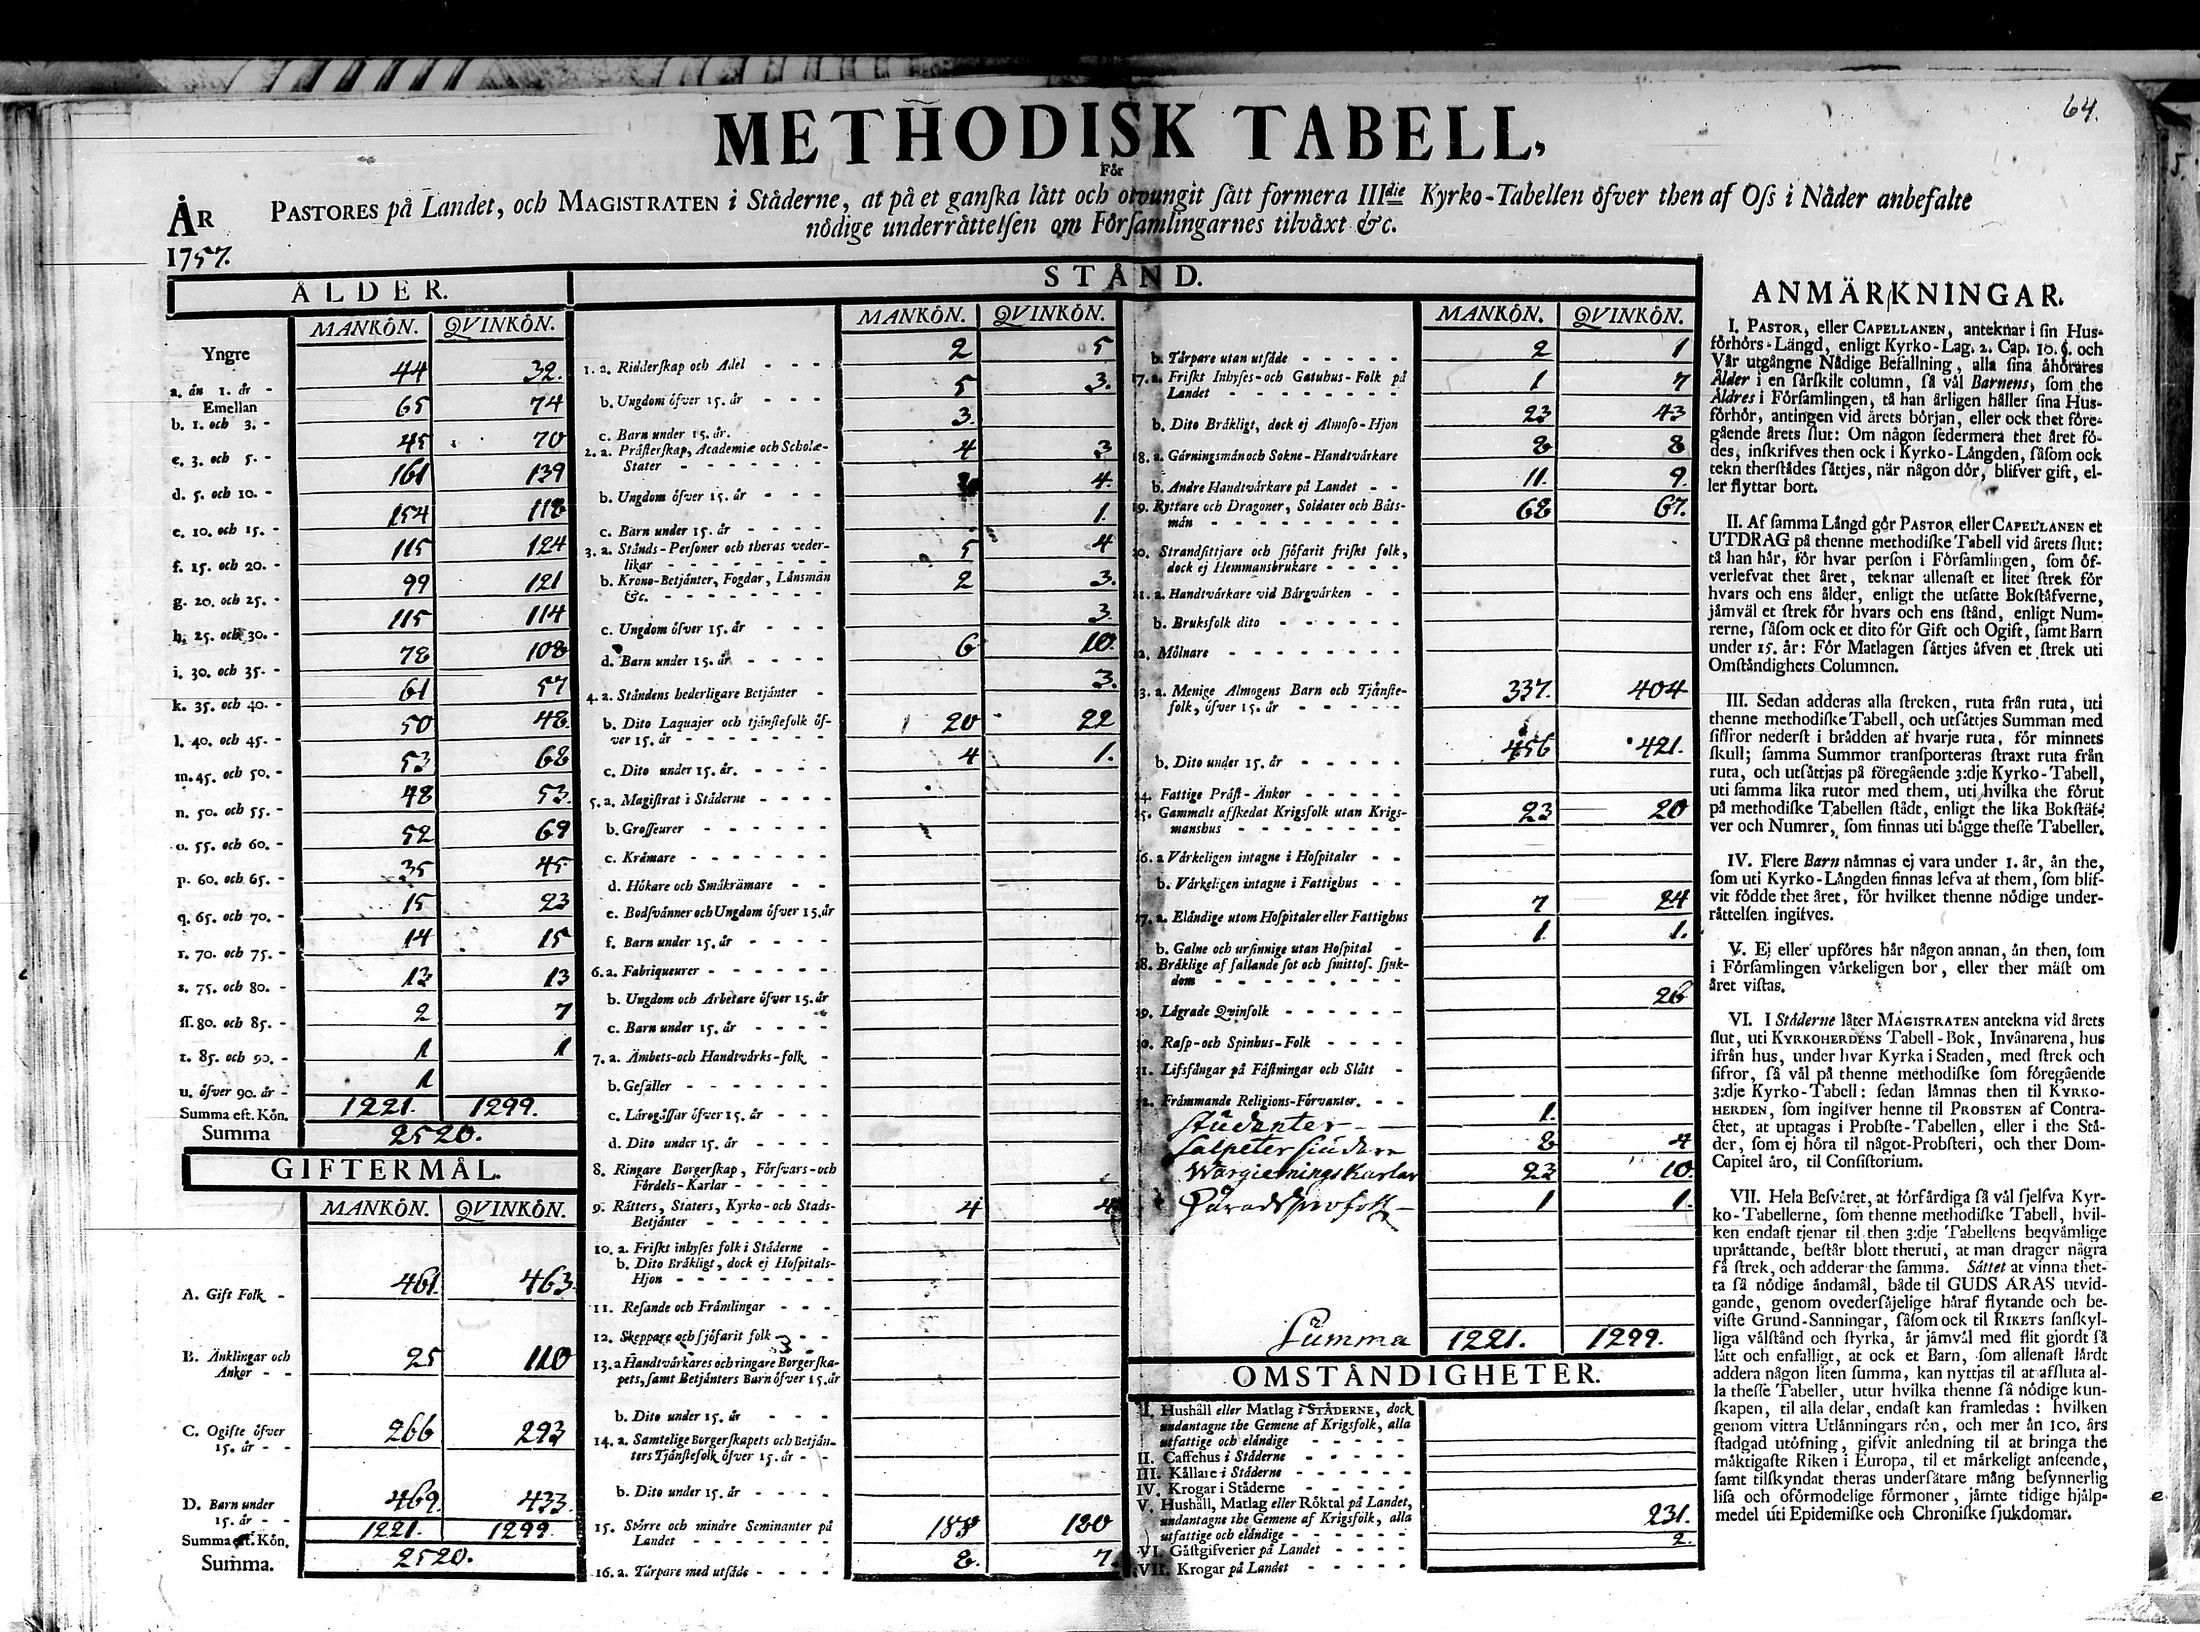 64.
METHODISK TABELL,
För
ÅR PASTORES på Landet, och MAGISTRATEN i Ståderne, at på et ganſka lått och otvungit ſått formera IIIdie Kyrko-Tabellen öfver then af Oſs i Nåder anbefalte
nödige underråttelſen om Förſamlingarnes tilvåxt &c.
1757.
ÅLDER.
MANKÖN. QVINKÖN.
Yngre
a. ån 1. år - 44 32.
Emellan
b. 1. och 3. - 65 74
c. 3. och 5. - 45 70
d. 5. och 10. - 161 139
e. 10. och 15. - 154 118
f. 15. och 20. - 115 124
g. 20. och 25. - 99 121
h. 25. och 30. - 115 114
i. 30. och 35. - 78 108
k. 35. och 40. - 61 57
l. 40. och 45. - 50 48
m. 45. och 50. - 53 68
n. 50. och 55. - 48 53.
o. 55. och 60. - 52 69
p. 60. och 65. - 35 45
q. 65. och 70. - 15 23
r. 70. och 75. - 14 15
s. 75. och 80. - 13 13
ſſ. 80. och 85. - 2 7
t. 85. och 90. - 1 1
u. öfver 90. år - 1
Summa eft. Kön. 1221. 1299.
Summa 2520.
GIFTERMÅL.
MANKÖN. QVINKÖN.
A. Gift Folk - 461 463
B. Änklingar och
Ankor - - 25 110
C. Ogifte öfver
15. år - - 266 293
D. Barn under
15. år - - 469. 433.
Summa eft. Kön. 1221. 1299.
Summa. 2520.
STÅND.
MANKÖN. QVINKÖN.
1. a. Ridderſkap och Adel - - - 2 5
b. Ungdom öfver 15. år - - - 5 3.
c. Barn under 15. år. 3.
2. a. Pråſterſkap, Academiæ och Scholæ-
Stater - - - - - - - 4 3
b. Ungdom öfver 15. år - - - 4.
c. Barn under 15. år - - - - 1.
3. a. Stånds-Perſoner och theras veder-
likar - - - - - - - - 5 4
b. Krono-Betjånter, Fogdar, Lånsmån
&c. - - - - - - - - 2 3.
c. Ungdom öfver 15. år - - - 3.
d. Barn under 15. år - - - - 6 10.
4. a. Ståndens hederligare Betjånter - 3.
b. Dito Laquajer och tjånſtefolk öf-
ver 15. år - - - - - - - 20 22
c. Dito under 15. år. - - - - 4 1.
5. a. Magiſtrat i Ståderne - - - -
b. Groſſeurer - - - - - -
c. Kråmare - - - - - - -
d. Hökare och Småkråmare - -
e. Bodſvånner och Ungdom öfver 15. år
f. Barn under 15. år - - - -
6. a. Fabriqueurer - - - - - -
b. Ungdom och Arbetare öfver 15. år
c. Barn under 15. år - - - -
7. a. Åmbets-och Handtvårks-folk -
b. Geſåller - - - - - - -
c. Årogåſſar öfver 15. år - - -
d. Dito under 15. år - - - -
8. Ringare Borgerſkap, Förſvars-och
Fördels-Karlar - - - - -
9. Råtters, Staters, Kyrko-och Stads-
Betjånter - - - - - - 4 4
10. a. Friſkt inhyſes folk i Ståderne -
b. Dito Bråkligt, dock ej Hoſpitals-
Hjon - - - - - - - -
11. Reſande och Fråmlingar - - -
12. Skeppare och ſjöfarit folk - - -
13. a Handtvårkares och ringare Borgerſka-
pets, ſamt Betjånters Barn öfver 15. år
b. Dito under 15. år - - -
14. a. Samtelige Borgerſkapets och Betjån-
ters Tjånſtefolk öfver 15. år - -
b. Dito under 15. år - - - -
15. Större och mindre Seminanter på
Landet - - - - - - - 188 180
16. a. Tårpare med utſåde - - - - 8. 7.
MANKÖN. QVINKÖN.
b. Tårpare utan utſåde - - - - - 2 1
17. a. Friſkt Inhyſes-och Gatuhus-Folk på
Landet - - - - - - - - 1 7
b. Dito Bråkligt, dock ej Almoſo-Hjon 23 43
18. a. Gårningsmån och Sokne-Handtvårkare 8 8
b. Andre Handtvårkare på Landet - - 11. 9.
19. Ryttare och Dragoner, Soldater och Båts-
mån - - - - - - - - - 68 67.
20. Strandſittjare och ſjöfarit friſkt folk,
dock ej Hemmansbrukare - - - -
21. a. Handtvårkare vid Bårgvårken - -
b. Bruksfolk dito - - - - - -
22. Mölnare - - - - - - - -
23. a. Menige Almogens Barn och Tjånſte-
folk, öfver 15. år - - - - - 337. 404
b. Dito under 15. år - - - - - 456 421.
24. Fattige Pråſt-Änkor - - - - -
25. Gammalt afſkedat Krigsfolk utan Krigs-
manshus - - - - - - - - 23 20
26. a Vårkeligen intagne i Hoſpitaler - -
b. Vårkeligen intagne i Fattighus - -
27. a. Elåndige utom Hoſpitaler eller Fattighus 7 24
b. Galne och urſinnige utan Hoſpital - 1 1.
28. Bråklige af fallande ſot och ſmittoſ. ſjuk-
dom - - - - - - - - -
29. Lågrade Qvinfolk - - - - - - 26
30. Raſp-och Spinhus-Folk - - - -
31. Lifsfångar på Fåſtningar och Slått -
32. Fråmmande Religions-Förvanter. - -
Studenter - 1.
Salpeter ſiudare 8 4
Wargiernings Karlar 23 10.
1 1.
Summa 1221. 1299.
OMSTÅNDIGHETER.
I. Hushåll eller Matlag i STÅDERNE, dock
undantagne the Gemene af Krigsfolk, alla
utfattige och elåndige - - - - -
II. Caffehus i Ståderne - - - - -
III. Kållare i Ståderne - - - - -
IV. Krogar i Ståderne - - - - -
V. Hushåll, Matlag eller Röktal på Landet,
undantagne the Gemene af Krigsfolk, alla
utfattige och elåndige - - - - - 231.
VI. Gåſtgifverier på Landet - - - - 2.
VII. Krogar på Landet - - - -
ANMÄRKNINGAR.
I. PASTOR, eller CAPELLANEN, anteknar i ſin Hus-
förhörs-Längd, enligt Kyrko-Lag. 2. Cap. 10. §. och
Vår utgångne Nådige Befallning, alla ſina åhörares
Ålder i en ſårſkilt column, ſå vål Barnens, ſom the
Äldres i Förſamlingen, tå han årligen håller ſina Hus-
förhör, antingen vid årets början, eller ock thet före-
gående årets ſlut: Om någon ſedermera thet året fö-
des, inſkrifves then ock i Kyrko-Långden, ſåſom ock
tekn therſtådes ſåttjes, når någon dör, blifver gift, el-
ler flyttar bort.
II. Af ſamma Långd gör PASTOR eller CAPELLANEN et
UTDRAG på thenne methodiſke Tabell vid årets ſlut:
tå han hår, för hvar perſon i Förſamlingen, ſom öf-
verlefvat thet året, teknar allenaſt et litet ſtrek för
hvars och ens ålder, enligt the utſatte Bokſtåfverne,
jåmväl et ſtrek för hvars och ens ſtånd, enligt Num-
rerne, ſåſom ock et dito för Gift och Ogift, ſamt Barn
under 15. år: För Matlagen ſåttjes åfven et ſtrek uti
Omſtåndighets Columnen.
III. Sedan adderas alla ſtreken, ruta från ruta, uti
thenne methodiſke Tabell, och utſåttjes Summan med
ſiffror nederſt i brådden af hvarje ruta, för minnets
ſkull; ſamma Summor tranſporteras ſtraxt ruta från
ruta, och utſåttjas på föregående 3:dje Kyrko-Tabell,
uti ſamma lika rutor med them, uti hvilka the förut
på methodiſke Tabellen ſtådt, enligt the lika Bokſtåf-
ver och Numrer, ſom finnas uti bågge theſſe Tabeller.
IV. Flere Barn nåmnas ej vara under 1. år, ån the,
ſom uti Kyrko-Långden finnas lefva af them, ſom blif-
vit födde thet året, för hvilket thenne nödige under-
råttelſen ingifves.
V. Ej eller upföres hår någon annan, ån then, ſom
i Förſamlingen vårkeligen bor, eller ther måſt om
året viſtas.
VI. I Ståderne låter MAGISTRATEN antekna vid årets
ſlut, uti KYRKOHERDENS Tabell-Bok, Invånarena, hus
ifrån hus, under hvar Kyrka i Staden, med ſtrek och
ſifror, ſå vål på thenne methodiſke ſom föregående
3:dje Kyrko-Tabell: ſedan låmnas then til KYRKO-
HERDEN, ſom ingifver henne til PROBSTEN af Contra-
ctet, at uptagas i Probſte-Tabellen, eller i the Stå-
der, ſom ej höra til något-Probſteri, och ther Dom-
Capitel åro, til Conſiſtorium.
VII. Hela Beſvåret, at förfårdiga ſå vål ſjelfva Kyr-
ko-Tabellerne, ſom thenne methodiſke Tabell, hvil-
ken endaſt tjenar til then 3:dje Tabellens beqvåmlige
upråttande, beſtår blott theruti, at man drager några
få ſtrek, och adderar the ſamma. Såttet at vinna thet-
ta ſå nödige åndamål, både til GUDS ÅRAS utvid-
gande, genom ovederſåjelige håraf flytande och be-
viſte Grund-Sanningar, ſåſom ock til RIKETS ſanſkyl-
liga vålſtånd och ſtyrka, år jåmvål med flit gjordt ſå
lått och enfalligt, at ock et Barn, ſom allenaſt lårdt
addera någon liten ſumma, kan nyttjas til at afſluta al-
la theſſe Tabeller, utur hvilka thenne ſå nödige kun-
ſkapen, til alla delar, endaſt kan framledas: hvilken
genom vittra Utlånningars rön, och mer ån 100. års
ſtadgad utöfning, gifvit anledning til at bringa the
måktigaſte Riken i Europa, til et mårkeligt anſeende,
ſamt tilſkyndat theras underſåtare mång beſynnerlig
liſa och oförmodelige förmoner, jåmte tidige hjålp-
medel uti Epidemiſke och Chroniſke ſjukdomar.